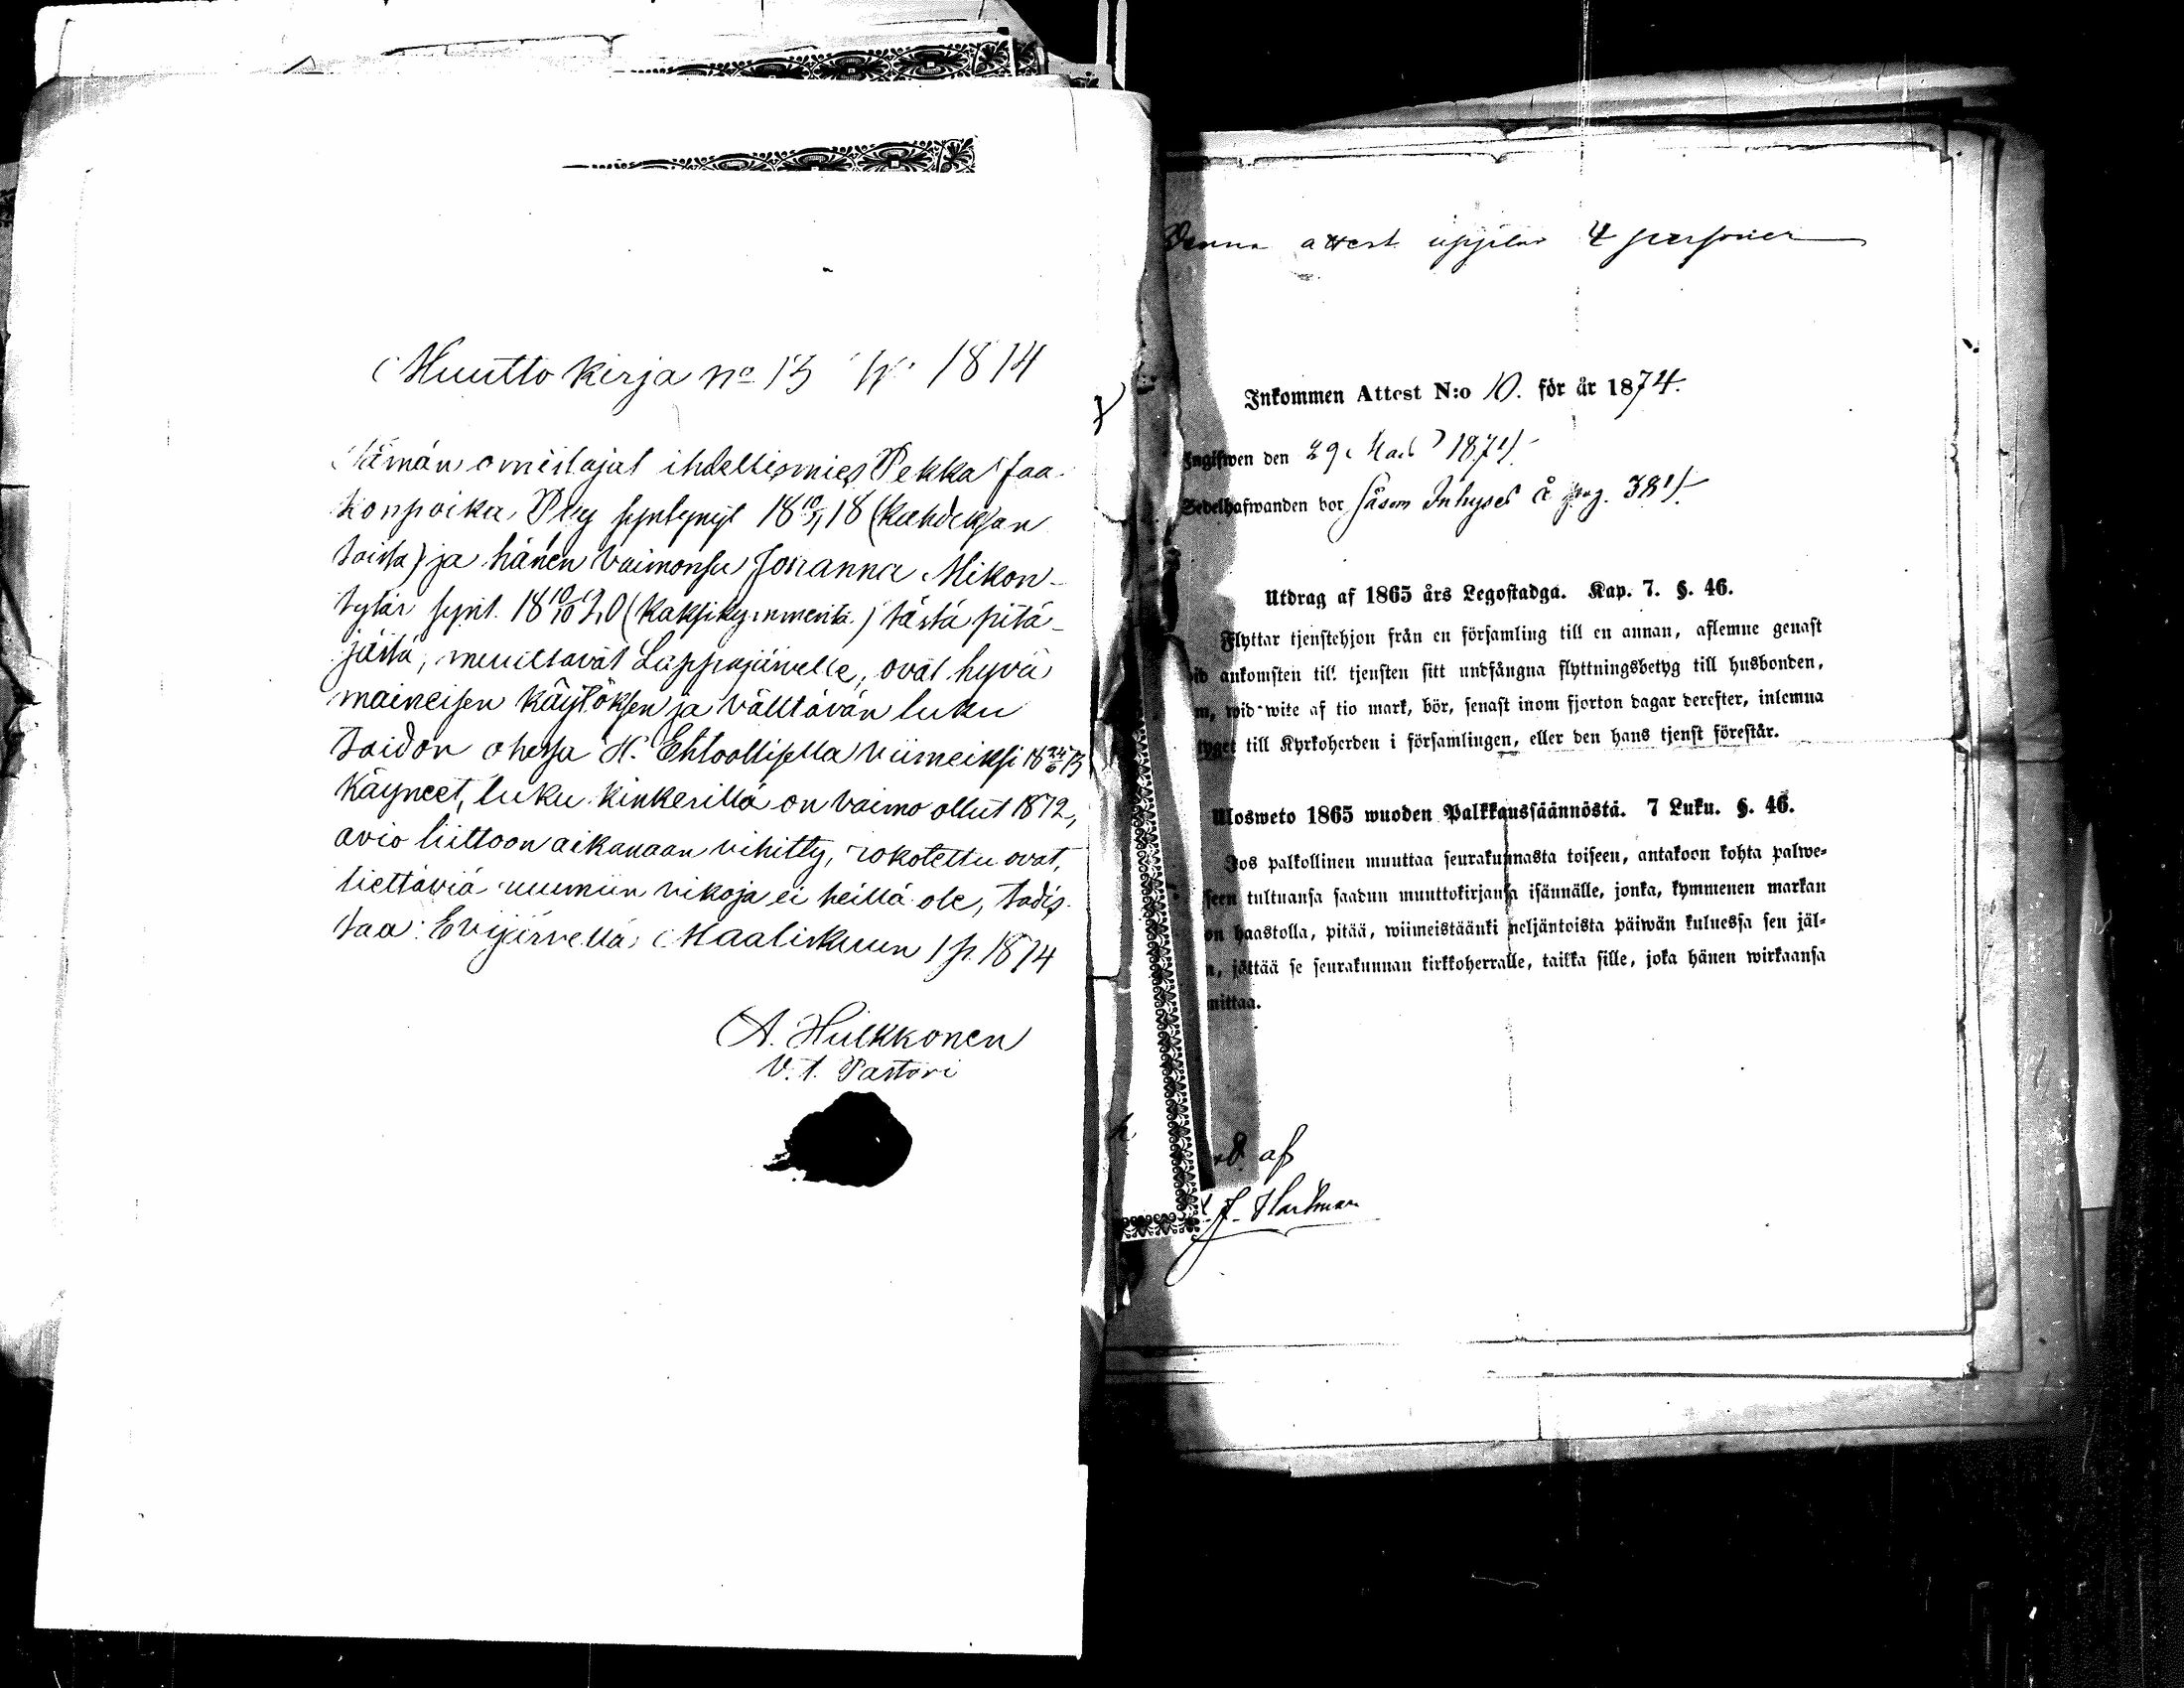 Muutto kirja no 13 1874
Tämän omistajat itsellismies Pekka Jaa-
konpoika Ply syntynyt 18 18 (kahdeksan
toista) ja hänen vaimonsa Johanna Mikon-
tytär synt. 18 10/10 20 (kaksikymmentä) tästä pitä-
jästä, muuttavat Lappajärvelle, ovat hyvä
maineisen käytöksen ja välttävän luku
taidon ohessa H. Ehtoollisella viimeiksi 18 24/6 73
käyneet, luku kinkerillä on vaimo ollut 1872,
avio liittoon aikanaan vihitty, rokotettu ovat,
tiettäviä ruumiin vikoja ei heillä ole, todis-
taa: Evijärvellä Maaliskuun 1 p. 1874
A. Hulkkonen
V. t. Pastori
Denna attest upptar 4 personer
Inkommen Attest N:o 10. för år 1874.
Ingifwen den 29 Mars 1874
Sedelhafwanden bor såsom Inhyses å pag. 381
Utdrag af 1865 års Legostadga. Kap. 7. §. 46.
Flyttar tjenstehjon från en församling till en annan, aflemne genast
wid ankomsten till tjensten sitt undfångna flyttningsbetyg till husbonden,
m, wid wite af tio mark, bör, senast inom fjorton dagar derefter, inlemna
tyget till Kyrkoherden i församlingen, eller den hans tjenst förestår.
Ulosweto 1865 wuoden Palkkaussäännöstä. 7 Luku. §. 46.
Jos palkollinen muuttaa seurakunnasta toiseen, antakoon kohta palwe-
seen tultuansa saadun muuttokirjansa isännälle, jonka, kymmenen markan
on haastolla, pitää, wiimeistäänki neljäntoista päiwän kuluessa sen jäl-
n, jättää se seurakunnan kirkkoherralle, taikka sille, joka hänen wirkaansa
mittaa.
af
J. Hartman